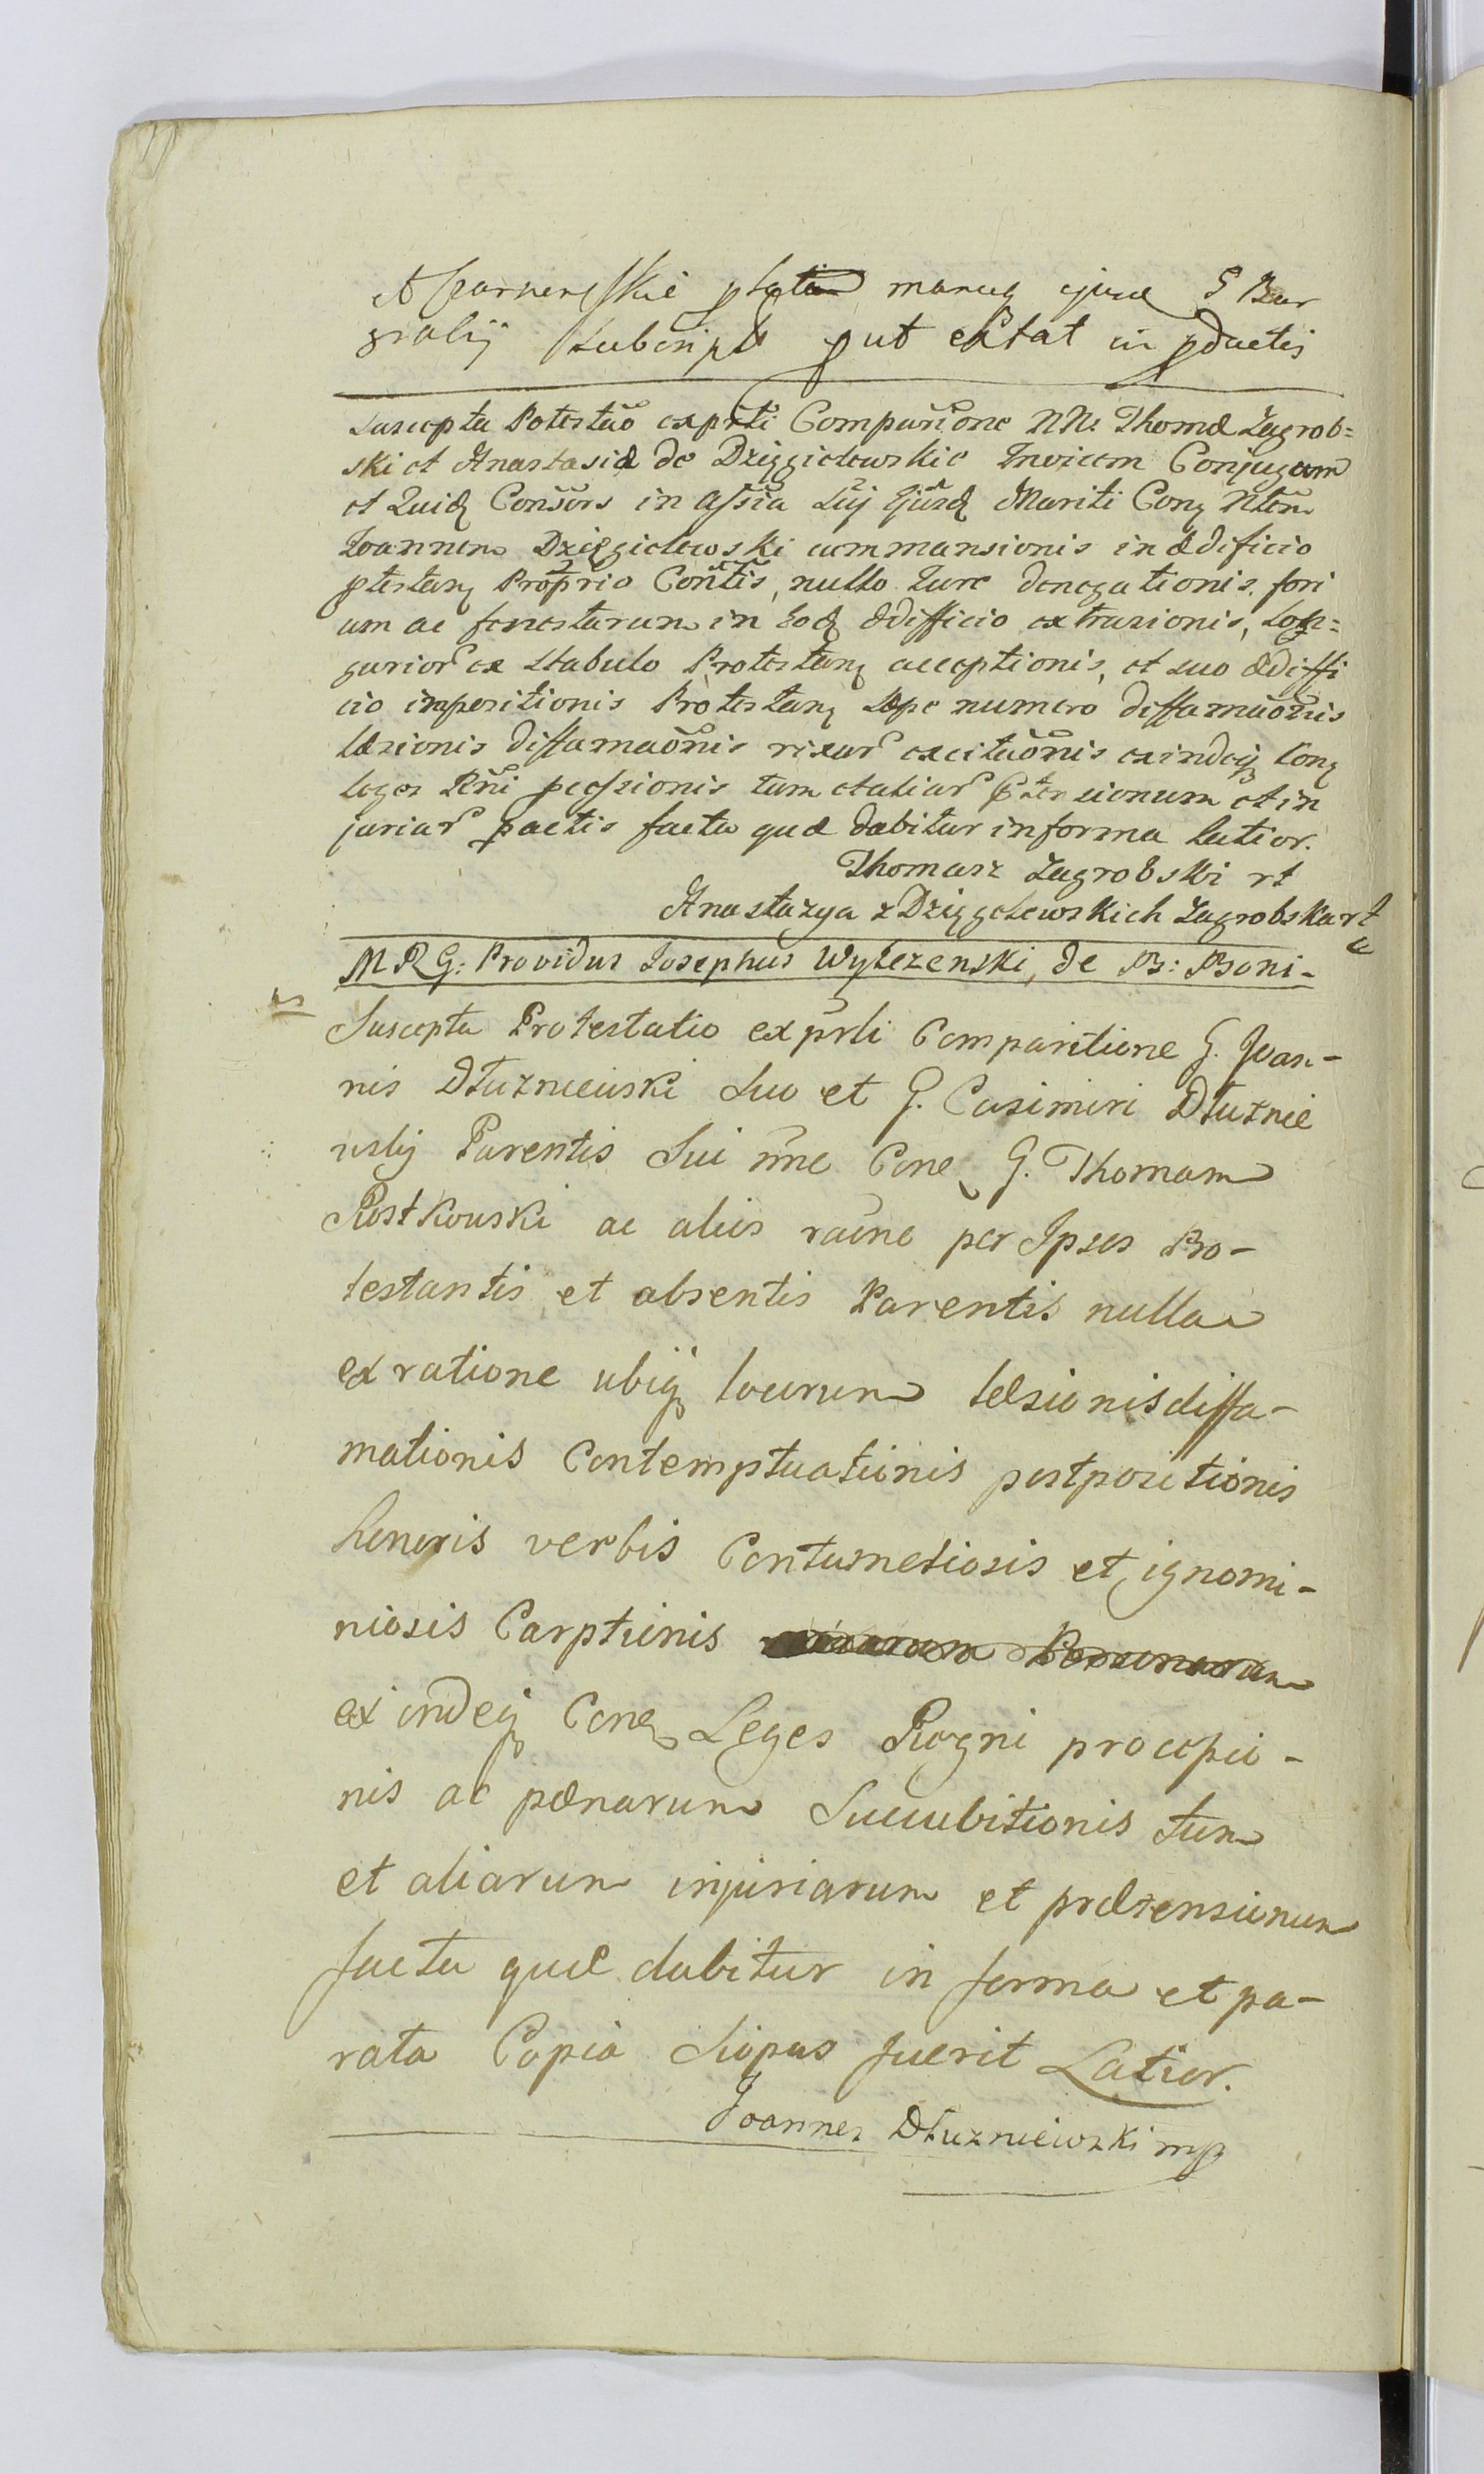 manuq ejusd G Bur
grabij Subscript put extat in pductis
Suscepta Potestão exprti Comparõne NN. Thomæ Zagrob=
ski et Anastasiæ de Dzięgielewskie Invicem Conjugum
et Quidq Consors in Assia Sui Ejusdq Mariti Conq Nlem
Joannem Dzięgielewski cummansionis in ædificio
ptestanq Proprio Contis, nullo Jure denegationis, fori
um ac fenestarum in Eodq ædifficio extrusionis, Lon=
gurior ex Stabulo Protestanq acceptionis, et suo ædiffi
cio impositionis Protestanq sæpe numero diffamaõnis
læsionis diffamaõnis rixar excitaõnis exindeq Conq
leges Rni pcessionis tum et aliar Ptensionum et in
juriar pactis facta quæ dabitur informa latior.
Thomasz Zagrobski rt
Anastazya z Dzięgelewskich Zagrobska rt
MRG: Providus Josephus Wyłezenski, de B: Boni-
Suscepta Protestatio ex prti Comparitione G. Joan-
nis Dłużniewski Suo et G. Casimiri Dłużnie
wskij Parentis Sui nne Conq G. Thomam
Rostkowski ac aliis raone per Ipsos Pro-
testantis et absentis Parentis nulla
ex ratione ubiq locorum læsionis diffa-
mationis Contemptuationis postpositionis
honoris verbis Contumeliosis et ignomi-
niosis Carptionis
exindeq Conq Leges Regni procefsio-
nis ac pænarum Succubitionis tum
et aliarum injuriarum et prætensionum
facta quæ dabitur in forma et pa-
rata Copia Siopus fuerit Latior.
Joannes Dłuzniewski mp